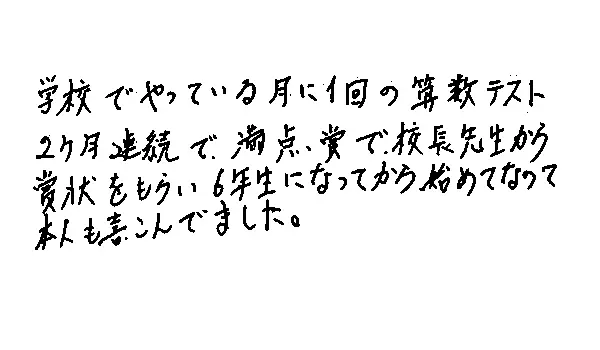 学校でやっている月に1回の算数テスト
2ケ月連続で満点、賞で校長先生から
賞状をもらい6年生になってから始めてなって
本人も喜こんでました。